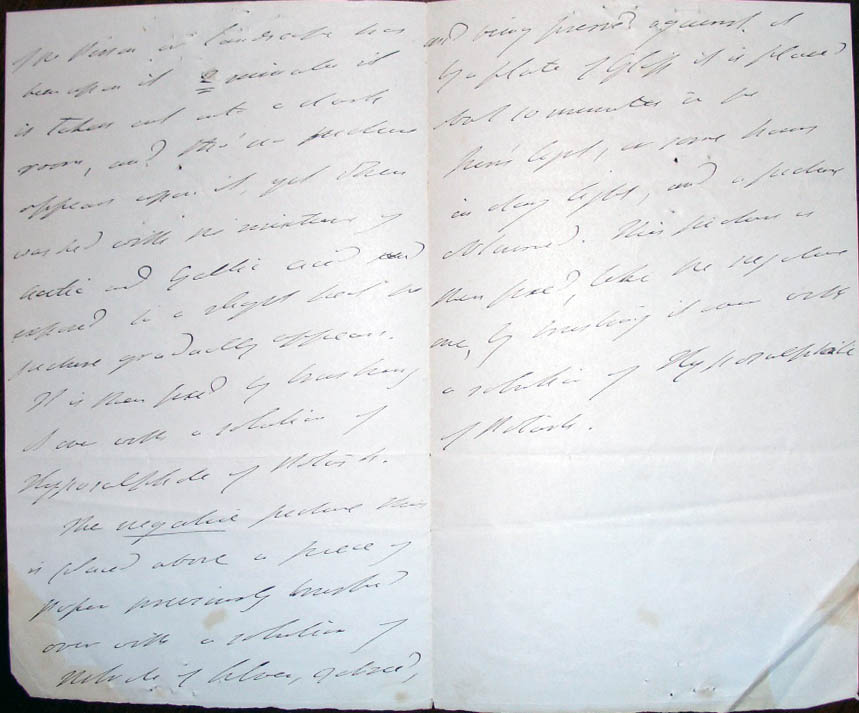 the Person or landscape has
been upon it 2 minutes it
is taken out into a dark
room, and tho' no picture
appears upon it, yet when
washed with the mixture of
acetic and Gallic acid and
exposed to a slight heat the
picture gradually appears.
It is then fixed by brushing
it over with a solution of
Hyposulphide of Potash.
The negative picture thus
is placed above a piece of
paper previously brushed
over with a solution of
Nitrate of Silver, &
and being pressed against it
by a plate of Glass it is placed
10 minutes in the
Sun's light, or some hours
in day light, and a picture
obtained. This picture is
then fixed, like the negative
one, by brushing it over with
a solution of Hyposulphite
of Potash.